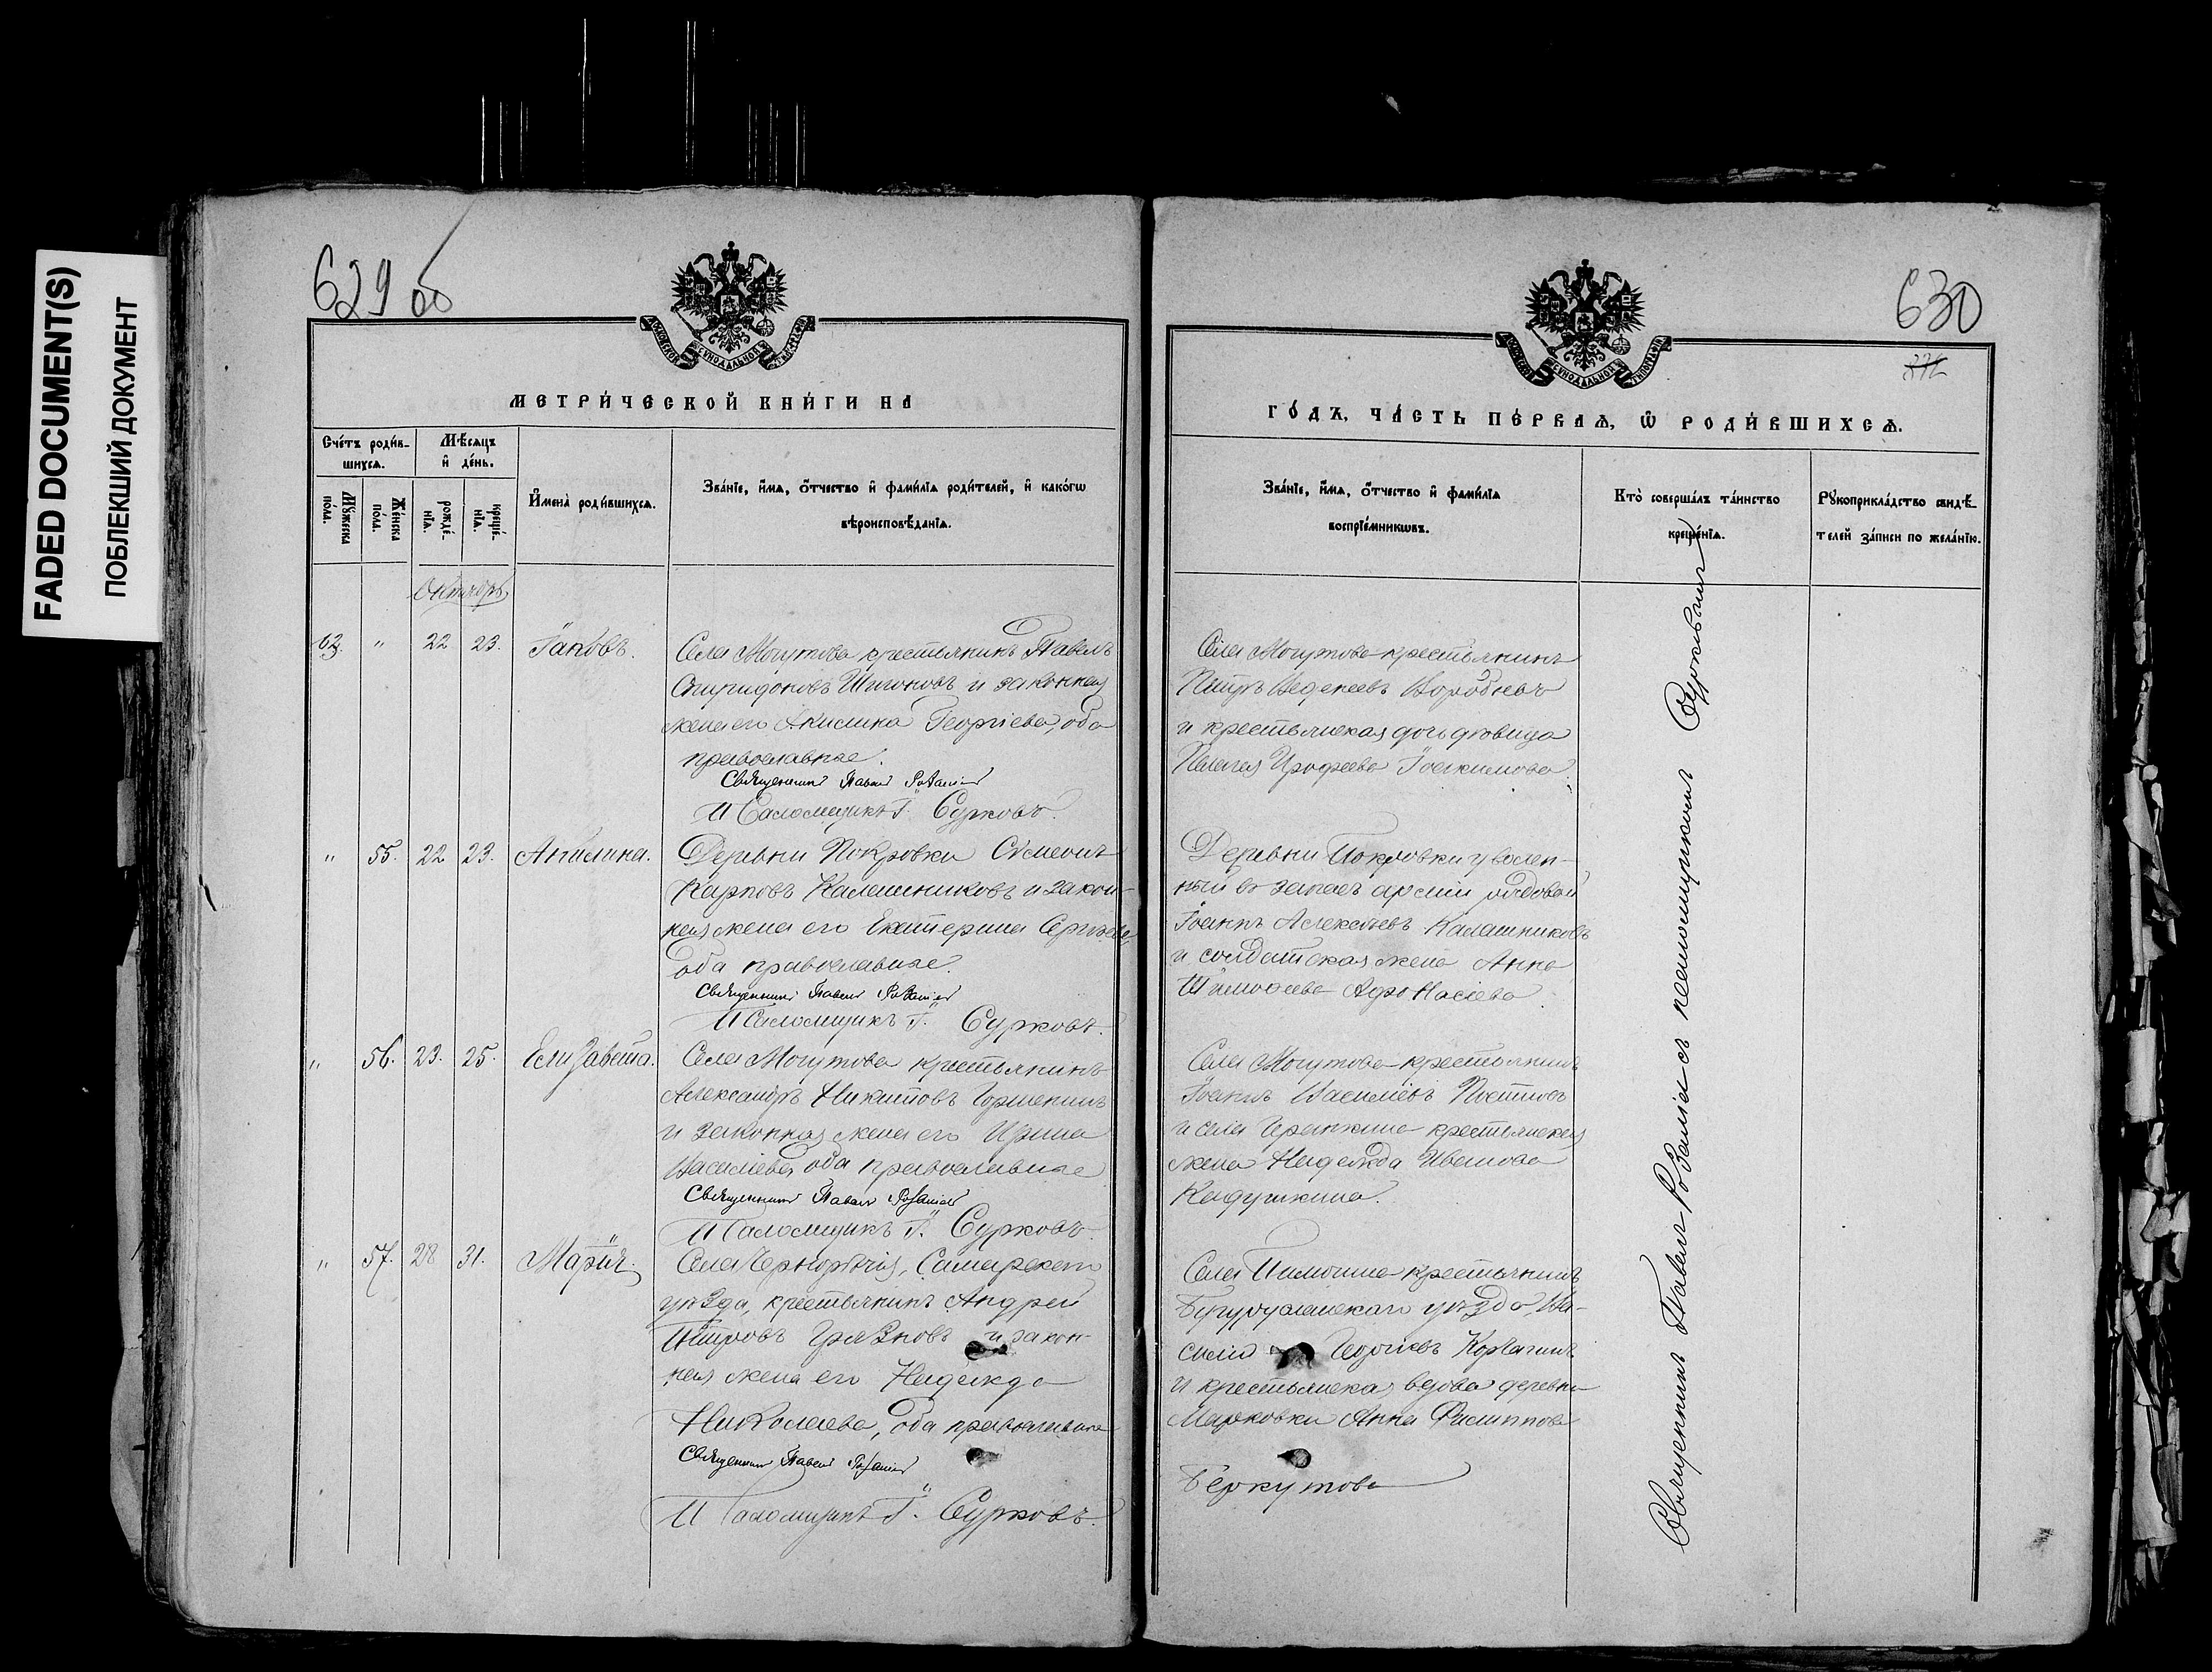 FADED DOCUMENT(S)
ПОБЛЕКШИЙ ДОКУМЕНТ
629 об
МЕТРИ́ЧЕСКОЙ КНИ́ГИ НА
Сче́тъ роди́в-
шихсѧ.
Мѣ́сѧцъ
и҆ де́нь.
Мꙋ́жеска
по́ла.
Же́нска
по́ла.
рожде́-
нїѧ.
креще́-
нїѧ.
И҆мена̀ роди́вшихсѧ.
Зва́нїе, и҆́мѧ, ѻ҆́тчество и҆ фами́лїѧ роди́телей, и҆ како́гѡ
вѣроисповѣ́данїѧ.
Октябрь
63. " 22 23. Іаковъ.
Села Могутова крестьянинъ Павелъ
Спиридоновъ Шигоновъ и законная
жена его Акилина Георгіева, оба
православные.
Священникъ Павел
Псаломщикъ Г. Сурковъ.
" 55. 22 23. Ангелина.
Деревни Покровки Сѵмеонъ
Карповъ Калашниковъ и закон-
ная жена его Екатерина Сергіева,
оба православные.
Священникъ Павел
Псаломщикъ Г. Сурковъ.
" 56. 23. 25. Елизавета.
Села Могутова крестьянинъ
Александръ Никитовъ Горшенинъ
и законная жена его Ирина
Василіева, оба православные
Священникъ Павел
Псаломщикъ Г. Сурковъ.
" 57. 28 31. Марія.
Села Черноречія, Самарскаго
уѣзда, крестьянинъ Андрей
Петровъ Грязновъ и закон-
ная жена его Надежда
Николаева, оба православные
Священникъ Павел
Псаломщикъ Г. Сурковъ.
630
ГО́ДЪ, ЧА́СТЬ ПЕ́РВАѦ, Ѡ҆ РОДИ́ВШИХСѦ.
Зва́нїе, и҆́мѧ, ѻ҆́тчество и҆ фами́лїѧ
воспрїе́мникѡвъ.
Кто̀ соверша́лъ та́инство
креще́нїѧ.
Рꙋкоприкла́дство свидѣ́-
телей за́писи по жела́нїю.
Села Могутова крестьянинъ
Петръ Веденеевъ Воробьевъ
и крестьянская дочь девица
Пелагея Ерофеева Іоакимова.
Деревни Покровки уволен-
ный въ запасъ арміи рядовой
Іоаннъ Алексѣевъ Калашниковъ
и солдатская жена Анна
Тимофеева Афонасіева.
Села Могутова крестьянинъ
Іоаннъ Василіевъ
и села крестьянская
жена Надежда Иванова
Кадушкина.
Села крестьянинъ
Бугурусланскаго уѣзда Ва-
силій Георгіевъ Корчагинъ
и крестьянская вдова деревни
Марковки Анна Филиппова
Беркутова
Священникъ Павелъ съ псаломщикомъ Сурковымъ